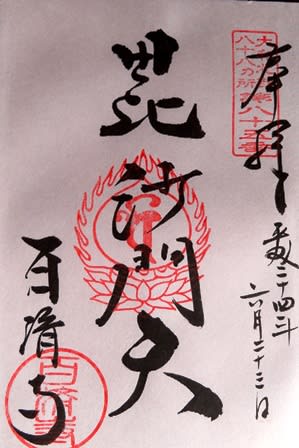 奉拝
平成二十四年
六月二十三日
八十八か所第八十五番
毘沙門天
百済寺
百済寺